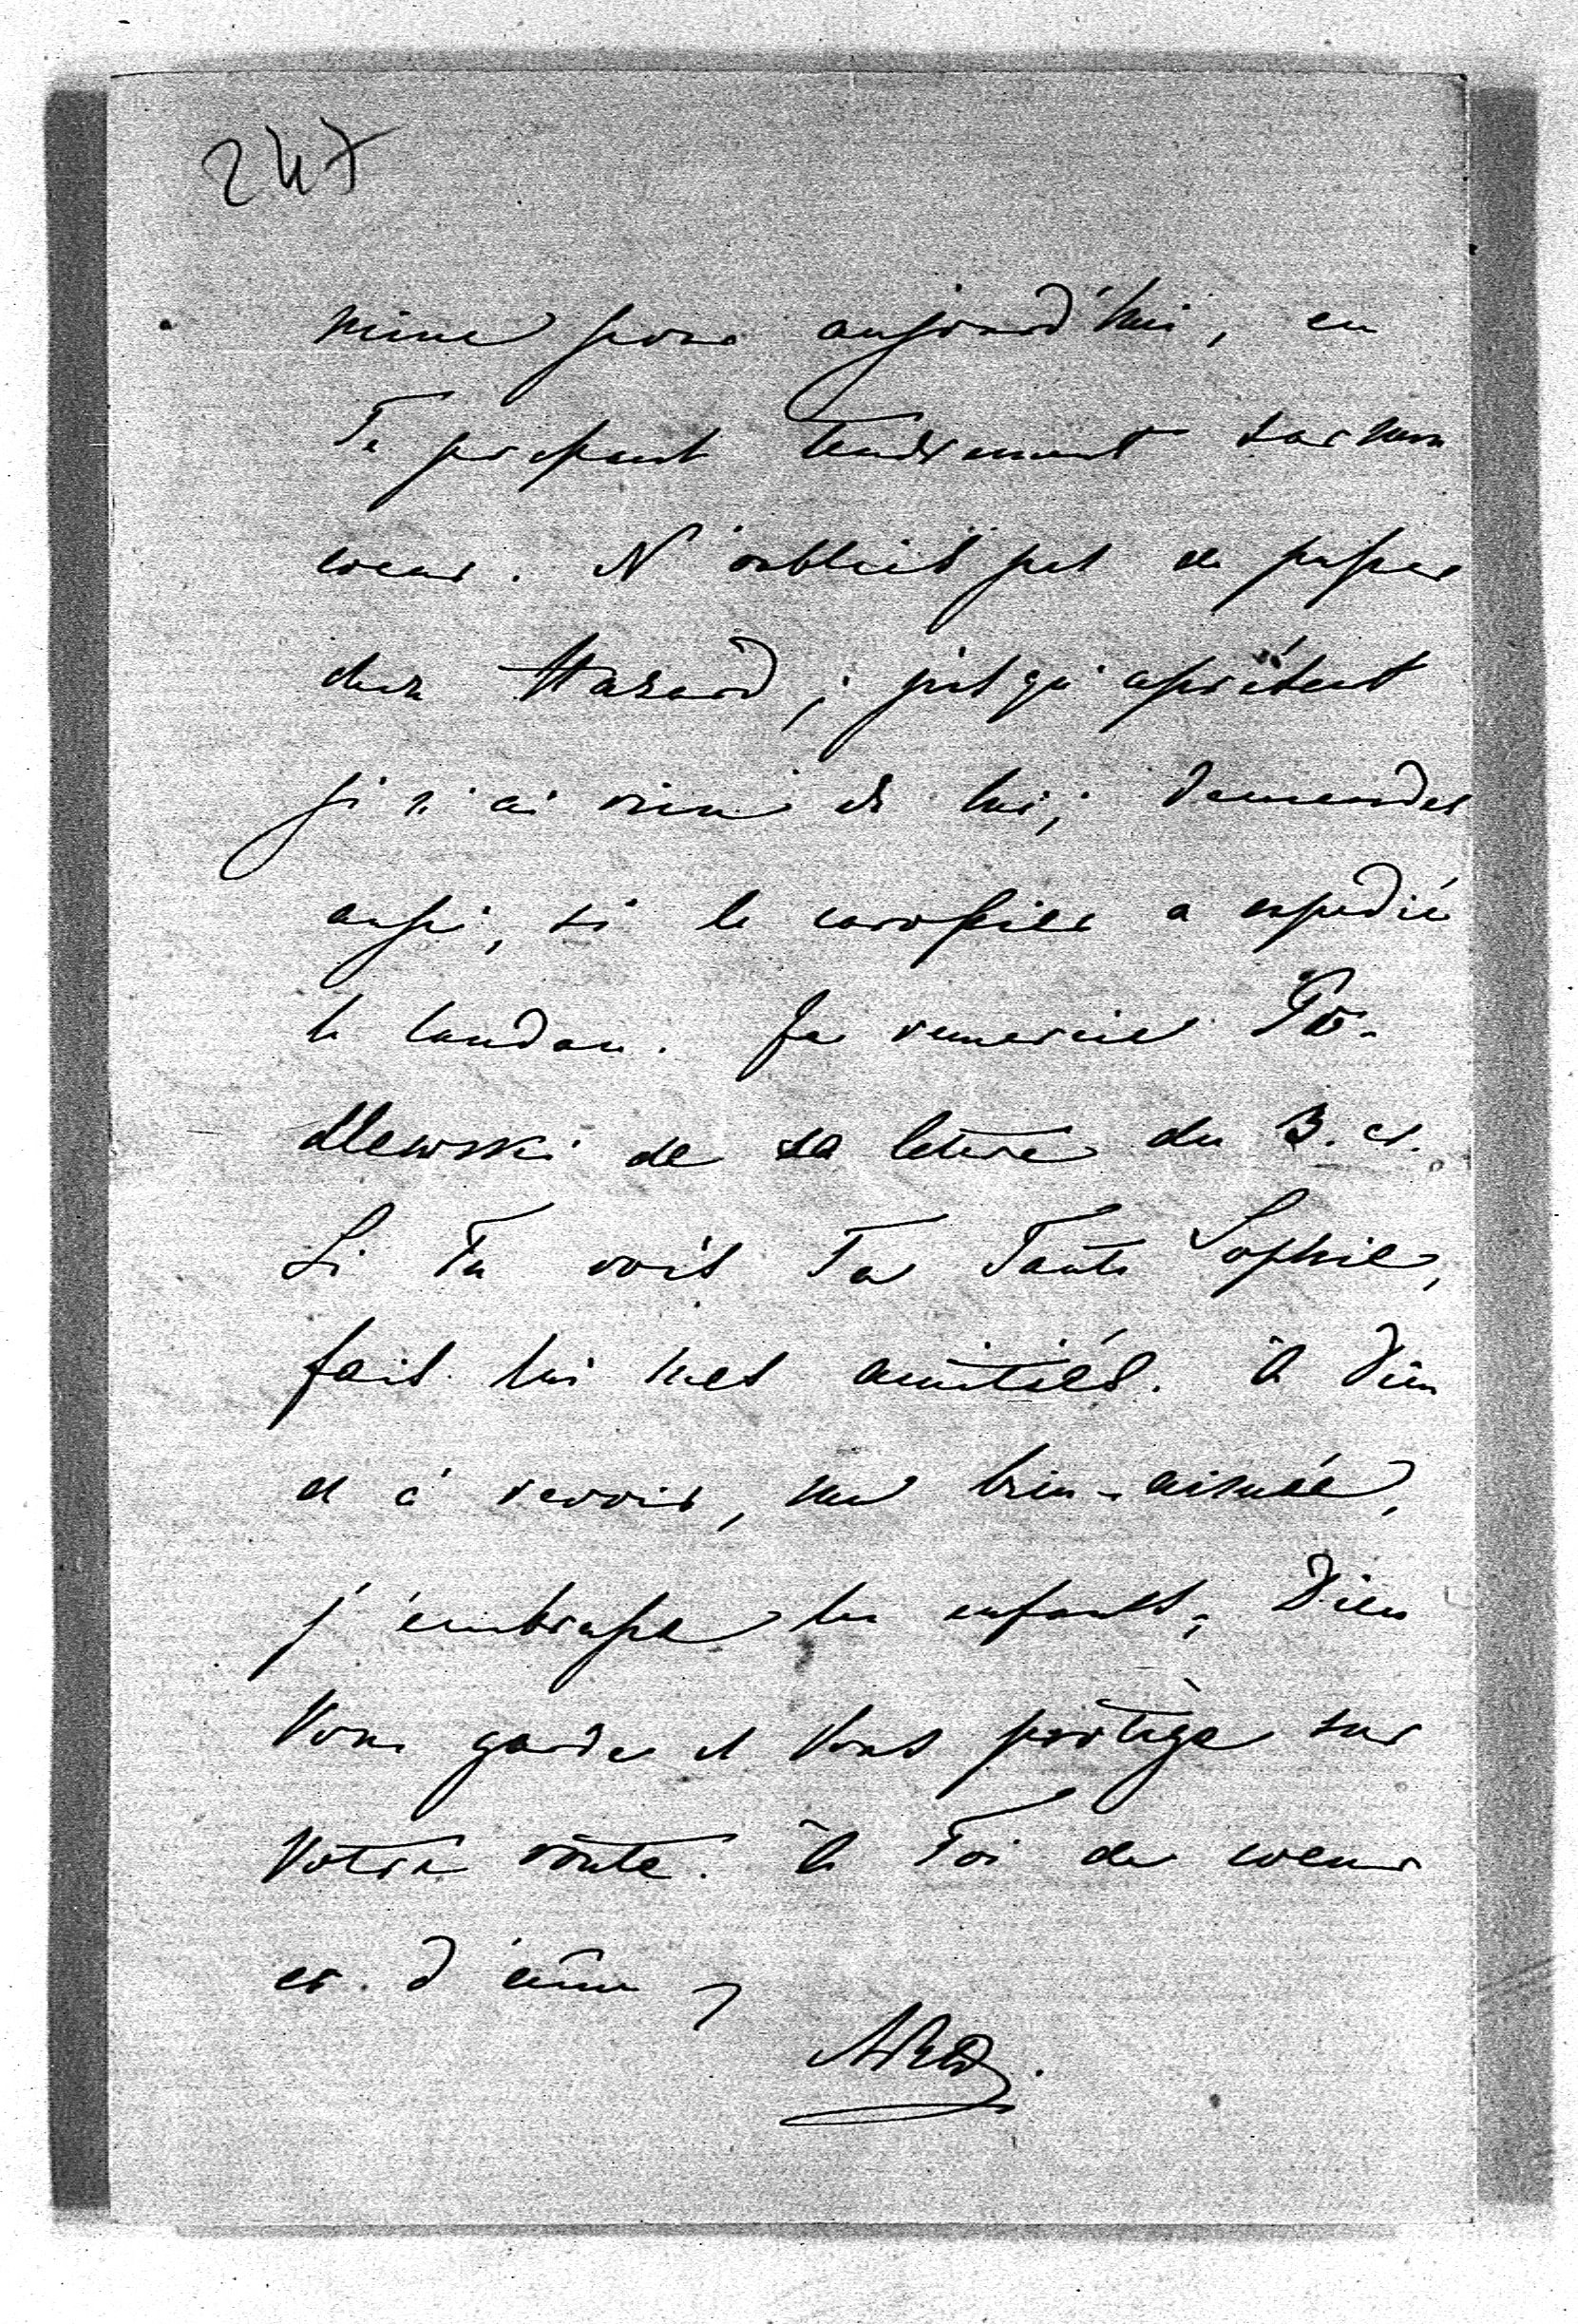 247
mine pour aujourd'hui, en
Te pressant tendrement sur mon
coeur. N'oublies pas de passer
chez Hazard; jusqu'àprésent
je n'ai rien de lui; demandes
aussi, si le carossier a expedié
le landau. Je remercie Po-
dlewski de sa lettre du 3. ct.
Si Tu vois Ta Tante Sophie,
fais lui mes amitiés. à Dieu
et à revoir, ma bien-aimée,
j'embrasse les enfants, Dieu
Vous garde et Vous protège sur
Votre route. à Toi de coeur
et d'âme